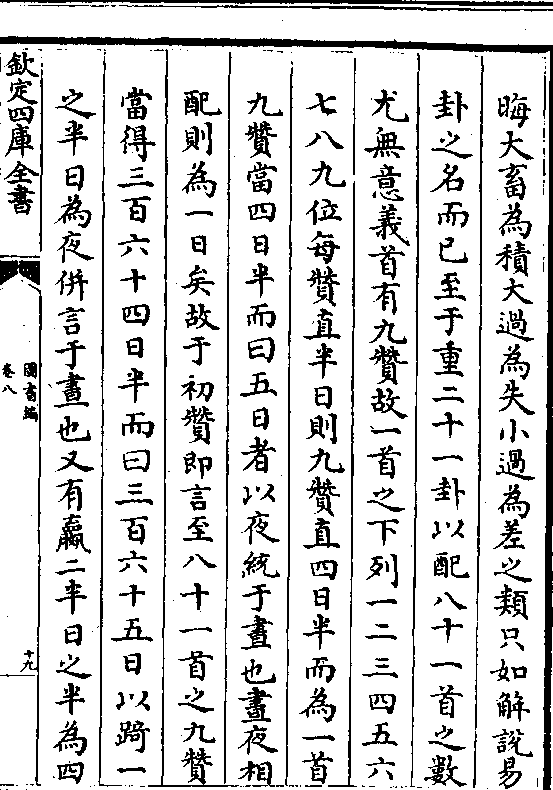 晦大畜為積大過為失小過為差之類只如解說易
卦之名而已至于重二十一卦以配八十一首之數
尤無意義首有九贊故一首之下列一二三四五六
七八九位每贊直半日則九贊直四日半而為一首
九贊當四日半而曰五日者以夜統于晝也晝夜相
配則為一日矣故于初贊即言至八十一首之九贊
當得三百六十四日半而曰三百六十五日以踦一
之半日為夜併言于晝也又有贏二半日之半為四
欽定四庫全書
圖書編
卷八
十九